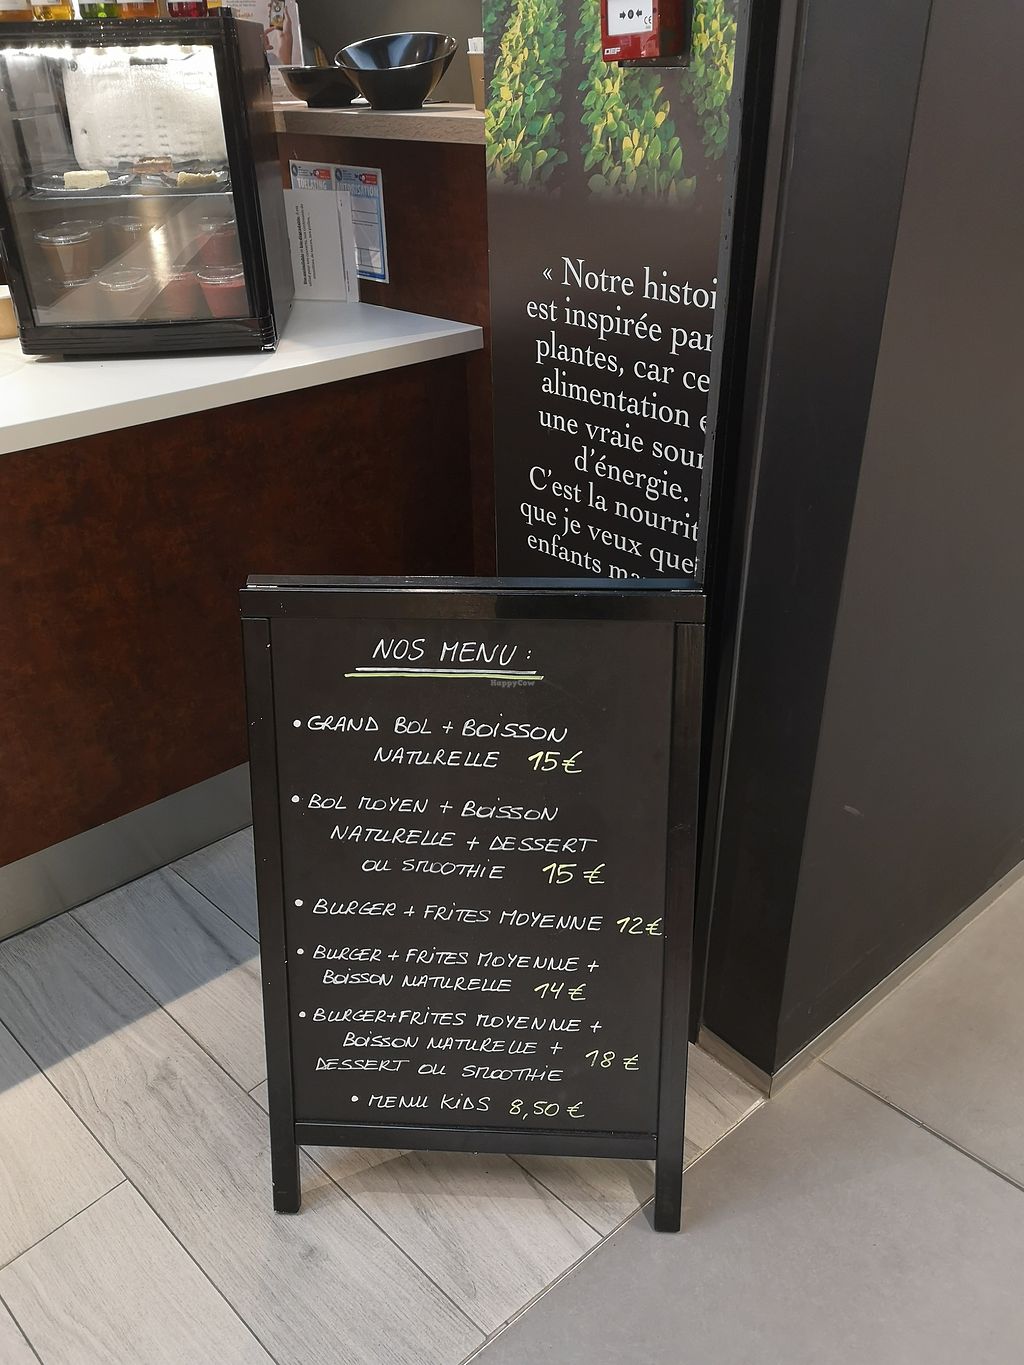 TOELATING
« Notre histoi
est inspirée par
plantes, car ce
alimentation e
une vraie sour
d'énergie.
C'est la nourrit
que je veux que
enfants ma
NOS MENU :
HappyCow
• GRAND BOL + BOISSON
NATURELLE 15€
• BOL MOYEN + BOISSON
NATURELLE + DESSERT
OU SMOOTHIE 15€
• BURGER + FRITES MOYENNE 12€
• BURGER + FRITES MOYENNE +
BOISSON NATURELLE 14€
• BURGER+FRITES MOYENNE +
BOISSON NATURELLE +
DESSERT OU SMOOTHIE 18€
• MENU KIDS 8,50€